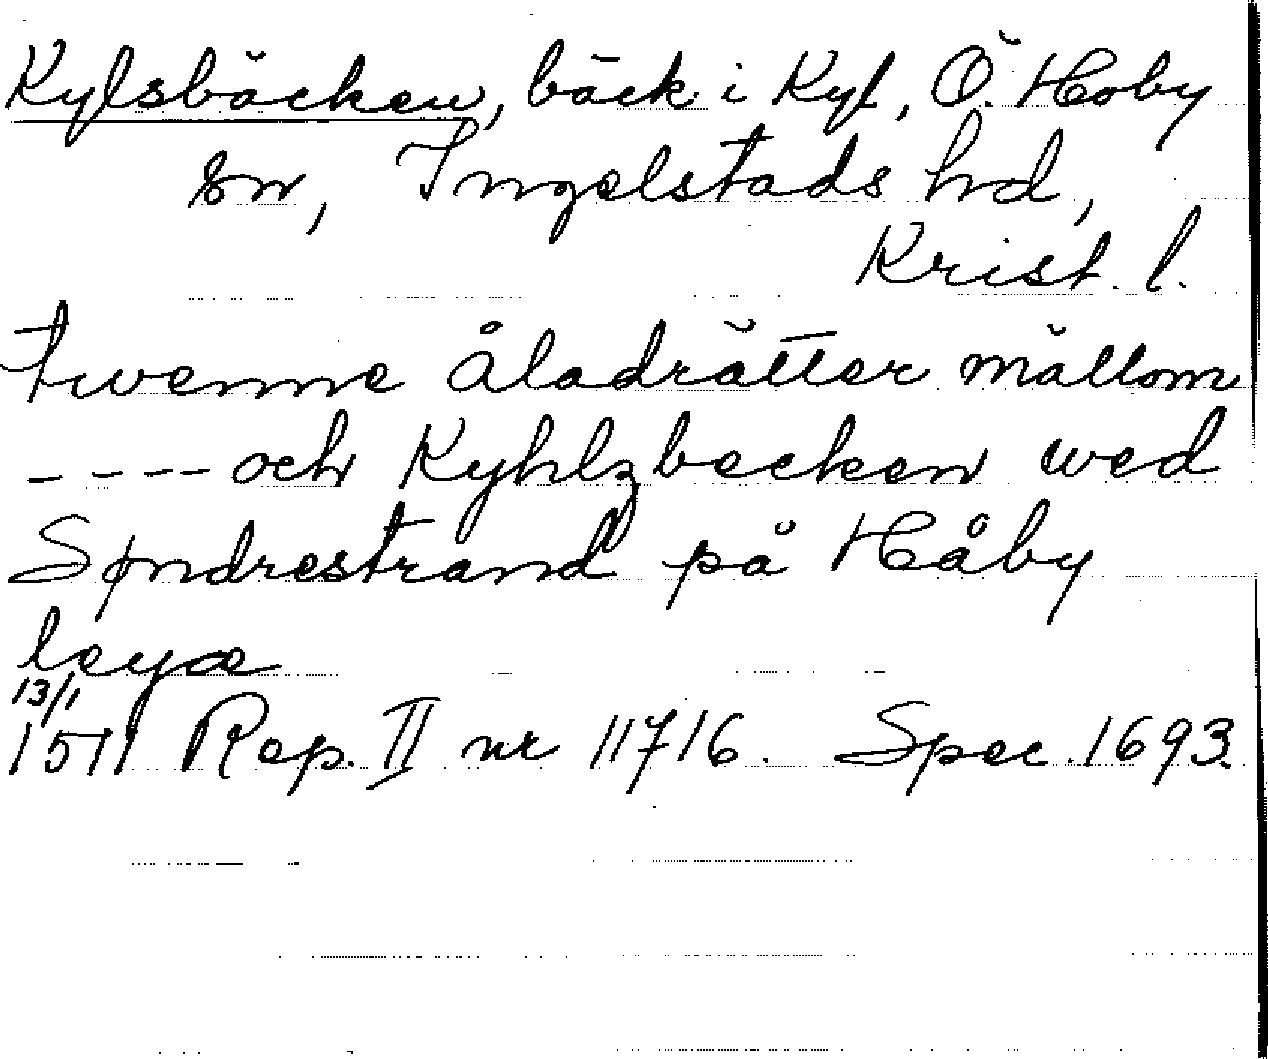 Kylsbäcken, bäck i Kyl, Ö. Hoby
sn, Ingelstads hd,
Krist. l.
twenne åladrätter mällom
---- och Kyhlzbecken wed
Søndrestrand på Håby
leyæ
13/1
1511 Rep. II nr 11716. Spec. 1693.